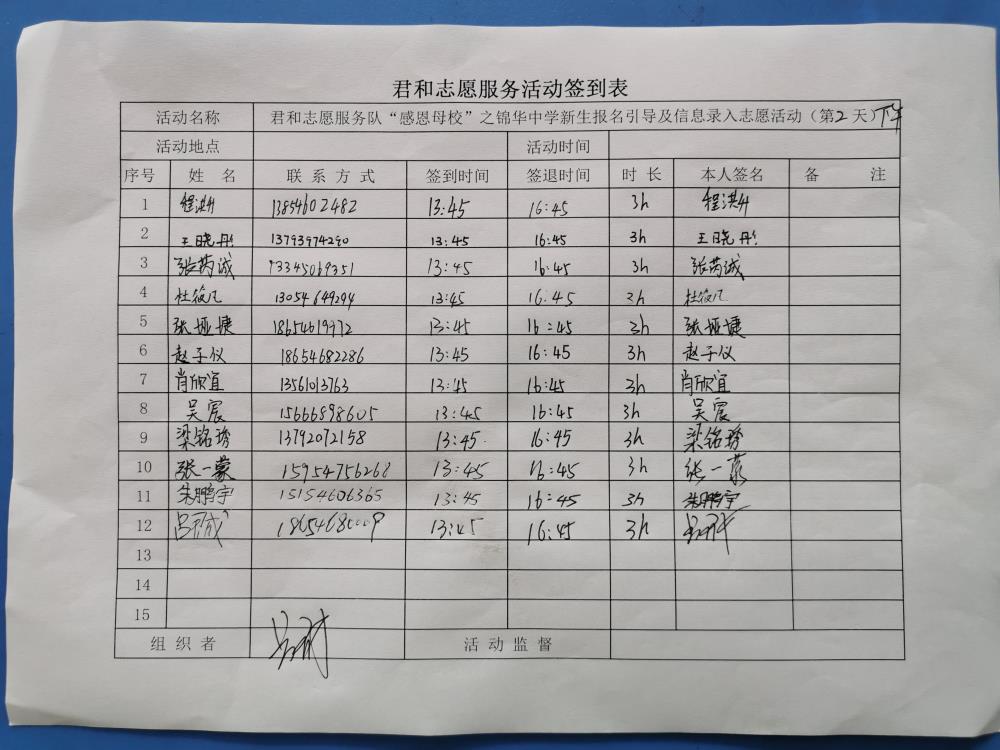 君和志愿服务活动签到表
活动名称 君和志愿服务队“感恩母校”之锦华中学新生报名引导及信息录入志愿活动（第2天）下午
活动地点 活动时间
序号 姓名 联系方式 签到时间 签退时间 时长 本人签名 备注
1 程洪升 13854602482 13:45 16:45 3h 程洪升
2 王晓彤 13793974290 13:45 16:45 3h 王晓彤
3 张芮诚 13:45 16:45 3h 张芮诚
4 杜筱凡 13054649294 13:45 16:45 3h 杜筱凡
5 张娅婕 13:45 16:45 3h 张娅婕
6 赵子仪 18654682286 13:45 16:45 3h 赵子仪
7 肖欣宜 13561013763 13:45 16:45 3h 肖欣宜
8 吴宸 15666898605 13:45 16:45 3h 吴宸
9 梁铭琇 13792072158 13:45 16:45 3h 梁铭琇
10 张一蒙 15954756268 13:45 16:45 3h 张一蒙
11 朱鹏宇 15154606365 13:45 16:45 3h 朱鹏宇
12 13:45 16:45 3h
13
14
15
组织者 活动监督